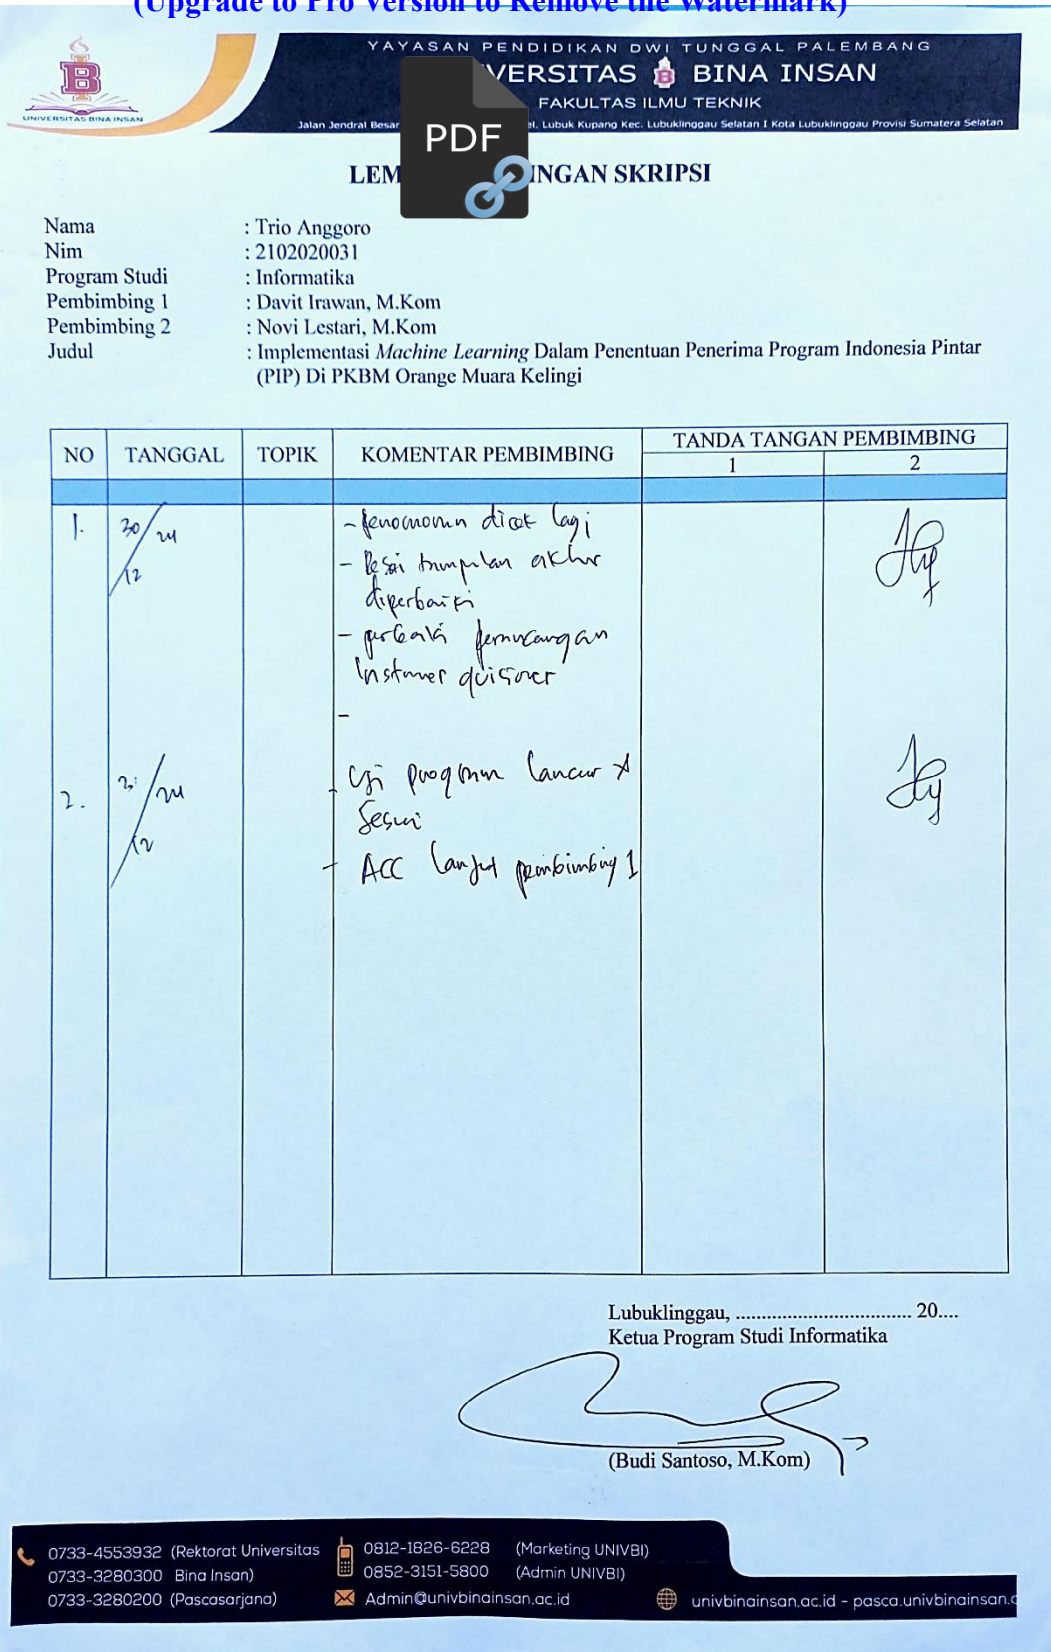 (Upgrade to Pro Version to Remove the Watermark)
YAYASAN PENDIDIKAN DWI TUNGGAL PALEMBANG
VERSITAS BINA INSAN
FAKULTAS ILMU TEKNIK
Jalan Jendral Besar el. Lubuk Kupang Kec. Lubuklinggau Selatan I Kota Lubuklinggau Provisi Sumatera Selatan
B
UNIVERSITAS BINA INSAN
PDF
LEM NGAN SKRIPSI
Nama : Trio Anggoro
Nim : 2102020031
Program Studi : Informatika
Pembimbing 1 : Davit Irawan, M.Kom
Pembimbing 2 : Novi Lestari, M.Kom
Judul : Implementasi Machine Learning Dalam Penentuan Penerima Program Indonesia Pintar
(PIP) Di PKBM Orange Muara Kelingi
NO TANGGAL TOPIK KOMENTAR PEMBIMBING TANDA TANGAN PEMBIMBING
1 2
1. 30/12 24 - dicek lagi
- akhir
diperbaiki
- perbaiki perancangan
-
2. /12 24 - Uji program lancar
Sesuai
- ACC lanjut pembimbing 1
Lubuklinggau, .................................. 20....
Ketua Program Studi Informatika
(Budi Santoso, M.Kom)
0733-4553932 (Rektorat Universitas
0733-3280300 Bina Insan)
0733-3280200 (Pascasarjana)
0812-1826-6228 (Marketing UNIVBI)
0852-3151-5800 (Admin UNIVBI)
Admin@univbinainsan.ac.id
univbinainsan.ac.id - pasca.univbinainsan.